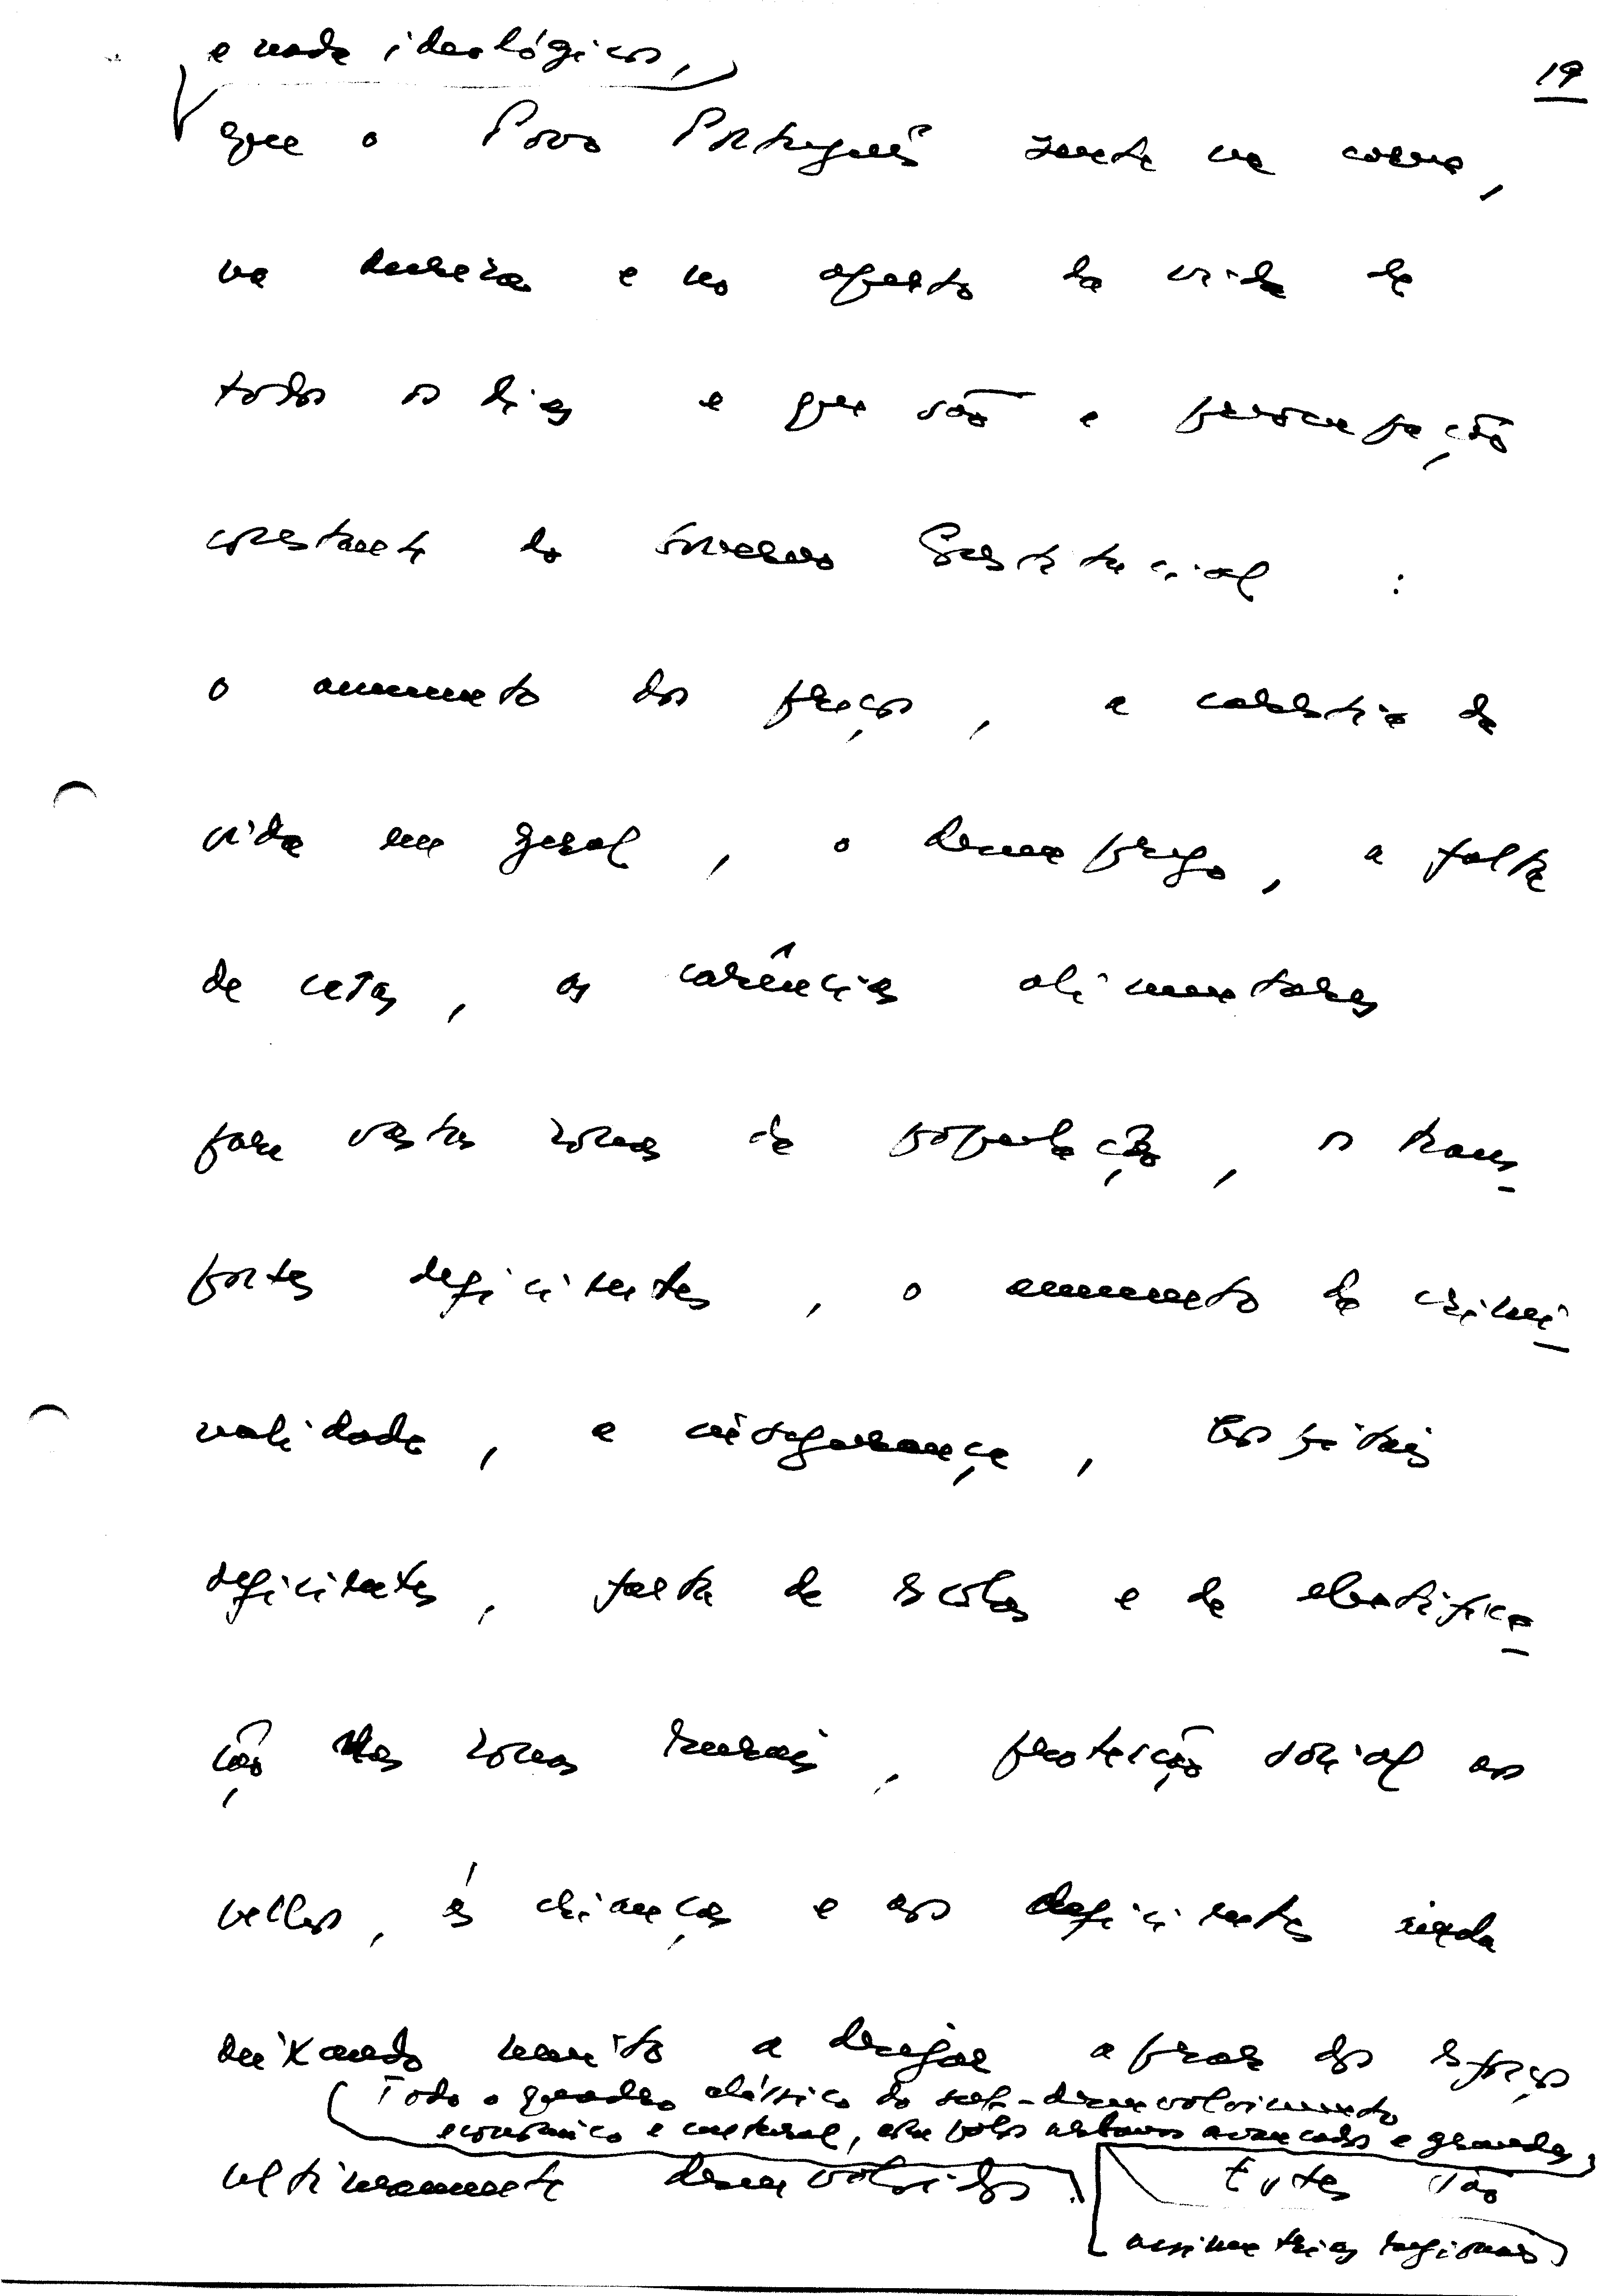 e nada ideológicos,
19
que o Povo Português sente na carne,
na dureza e no aperto da vida de
todos os dias e que são a preocupação
constante do Governo Constitucional :
o aumento dos preços, a carestia da
vida em geral, o desemprego, a falta
de casas, as carências alimentares
para vastas zonas da população, os trans-
portes deficientes, o aumento da crimi-
nalidade, a insegurança, hospitais
deficientes, falta de escolas e de electrifica-
ção das zonas rurais, protecção social aos
velhos, às crianças e aos deficientes ainda
deixando muito a desejar apesar dos esforços
Todo o quadro clássico do sub-desenvolvimento
económico e cultural, com polos urbanos avançados e grandes
ultimamente desenvolvidos. Estes são
assimetrias regionais